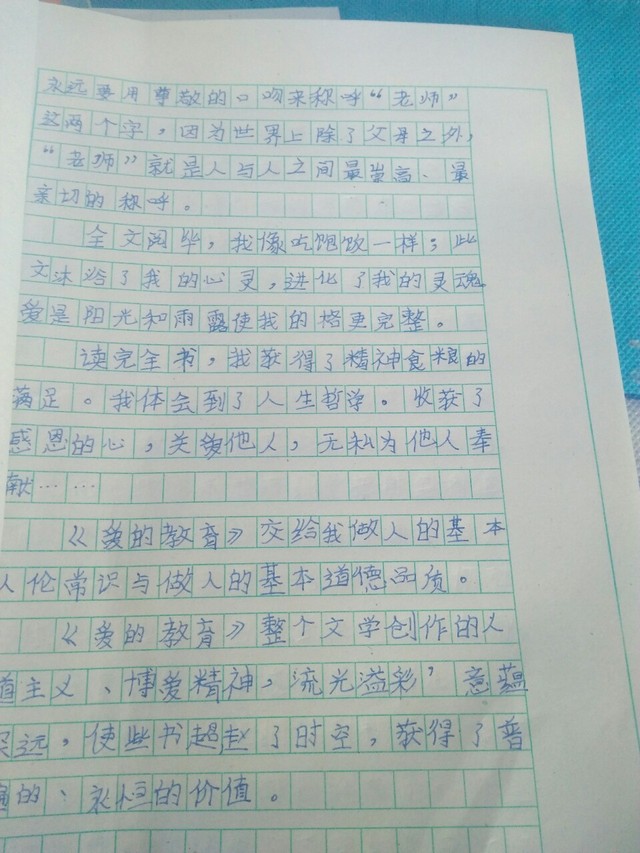 永远要用尊敬的口吻来称呼“老师”
这两个字，因为世界上除了父母之外，
“老师”就是人与人之间最崇高、最
亲切的称呼。
全文阅毕，我像吃饱饭一样；此
文沐浴了我的心灵，进化了我的灵魂
爱是阳光和雨露使我的格更完整。
读完全书，我获得了精神食粮的
满足。我体会到了人生哲学。收获了
感恩的心，关爱他人，无私为他人奉
献……
《爱的教育》交给我做人的基本
人伦常识与做人的基本道德品质。
《爱的教育》整个文学创作的人
道主义、博爱精神，流光溢彩，意蕴
深远，使些书超越了时空，获得了普
遍的、永恒的价值。